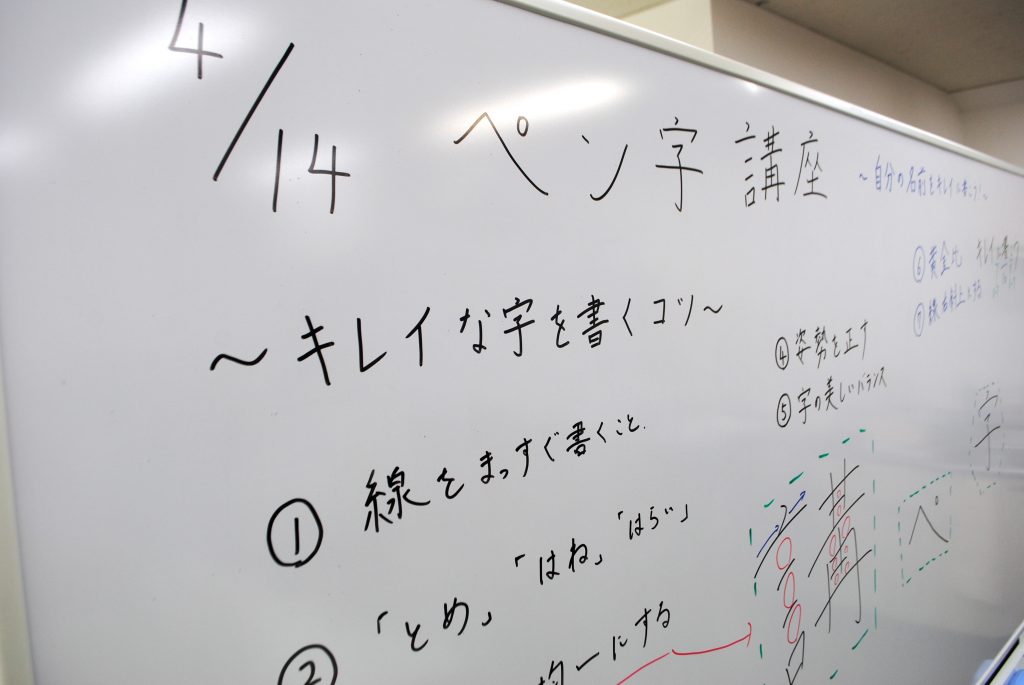 4/14 ペン字講座
～自分の名前をキレイに書こう！～
～キレイな字を書くコツ～
① 線をまっすぐ書くこと.
② 「とめ」「はね」「はらい」
均一にする
④ 姿勢を正す
⑤ 字の美しいバランス
⑥ 黄金比
⑦ 線を
講
ペ
字